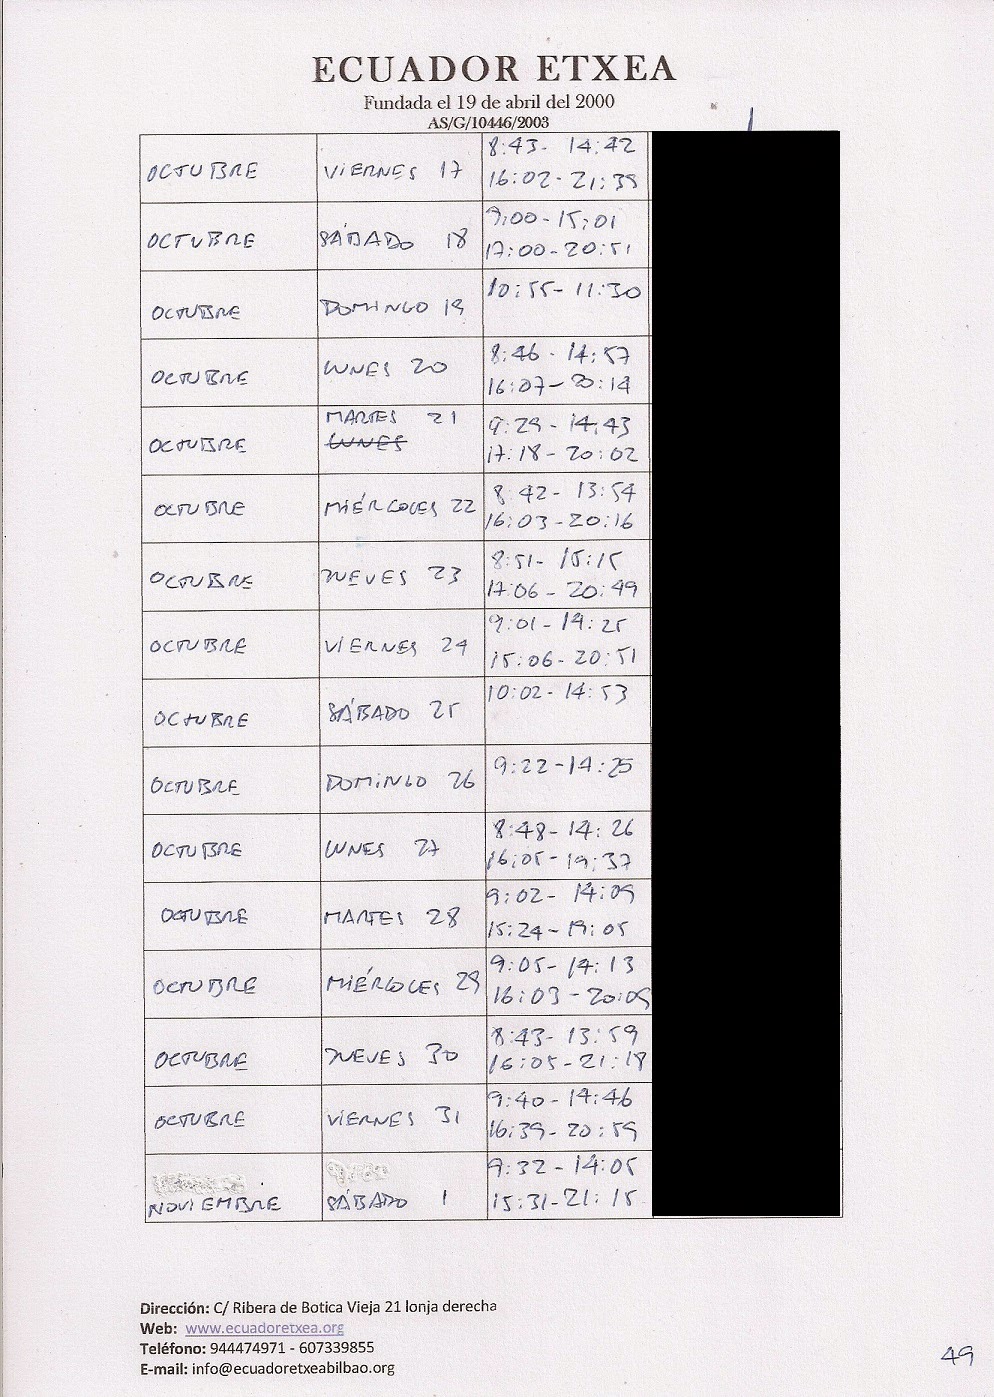 ECUADOR ETXEA
Fundada el 19 de abril del 2000
AS/G/10446/2003
OCTUBRE VIERNES 17 8:43- 14:42
16:02-21:39
OCTUBRE SÁBADO 18 9:00-15:01
17:00-20:51
OCTUBRE DOMINGO 19 10:55-11:30
OCTUBRE LUNES 20 8:46-14:57
16:07-20:14
OCTUBRE MARTES 21 9:29-14:43
LUNES 17:18-20:02
OCTUBRE MIÉRCOLES 22 8:42-13:54
16:03-20:16
OCTUBRE JUEVES 23 8:51-15:15
17:06-20:49
OCTUBRE VIERNES 24 9:01-14:25
15:06-20:51
OCTUBRE SÁBADO 25 10:02-14:53
OCTUBRE DOMINGO 26 9:22-14:25
OCTUBRE LUNES 27 8:48-14:26
16:05-19:37
OCTUBRE MARTES 28 9:02-14:09
15:24-19:05
OCTUBRE MIÉRCOLES 29 9:05-14:13
16:03-20:09
OCTUBRE JUEVES 30 8:43-13:59
16:05-21:18
OCTUBRE VIERNES 31 9:40-14:46
16:39-20:59
NOVIEMBRE SÁBADO 1 9:32-14:05
15:31-21:15
Dirección: C/ Ribera de Botica Vieja 21 lonja derecha
Web: www.ecuadoretxea.org
Teléfono: 944474971 - 607339855
E-mail: info@ecuadoretxeabilbao.org
49